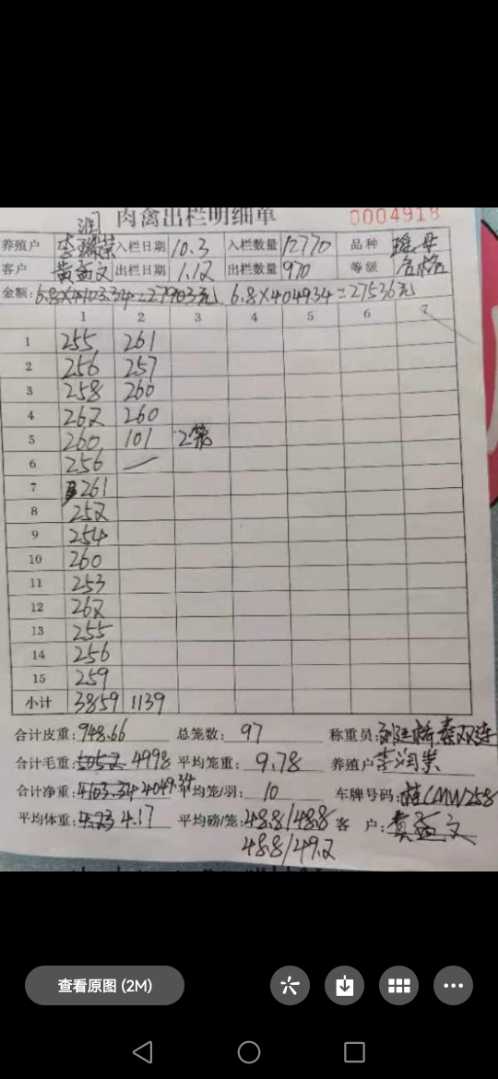 肉禽出栏明细单 0004918
养殖户 李润荣 入栏日期 10.3 入栏数量 12770 品种
客户 黄孟文 出栏日期 1.12 出栏数量 970 等级 合格
金额: 6.8×4103.34=27903元 6.8×4049.34=27536元
1 2 3 4 5 6 7
1 255 261
2 256 257
3 258 260
4 262 260
5 260 101 2笼
6 256
7 261
8 252
9 254
10 260
11 253
12 262
13 255
14 256
15 259
小计 3859 1139
合计皮重: 948.66 总笼数: 97 称重员:
合计毛重: 5052 4998 平均笼重: 9.78 养殖户 李润荣
合计净重: 4103.34 4049.34 平均笼/羽: 10 车牌号码:
平均体重: 4.23 4.17 平均磅/笼: 48.8/48.8 客 户: 黄孟文
48.8/49.2
查看原图 (2M)